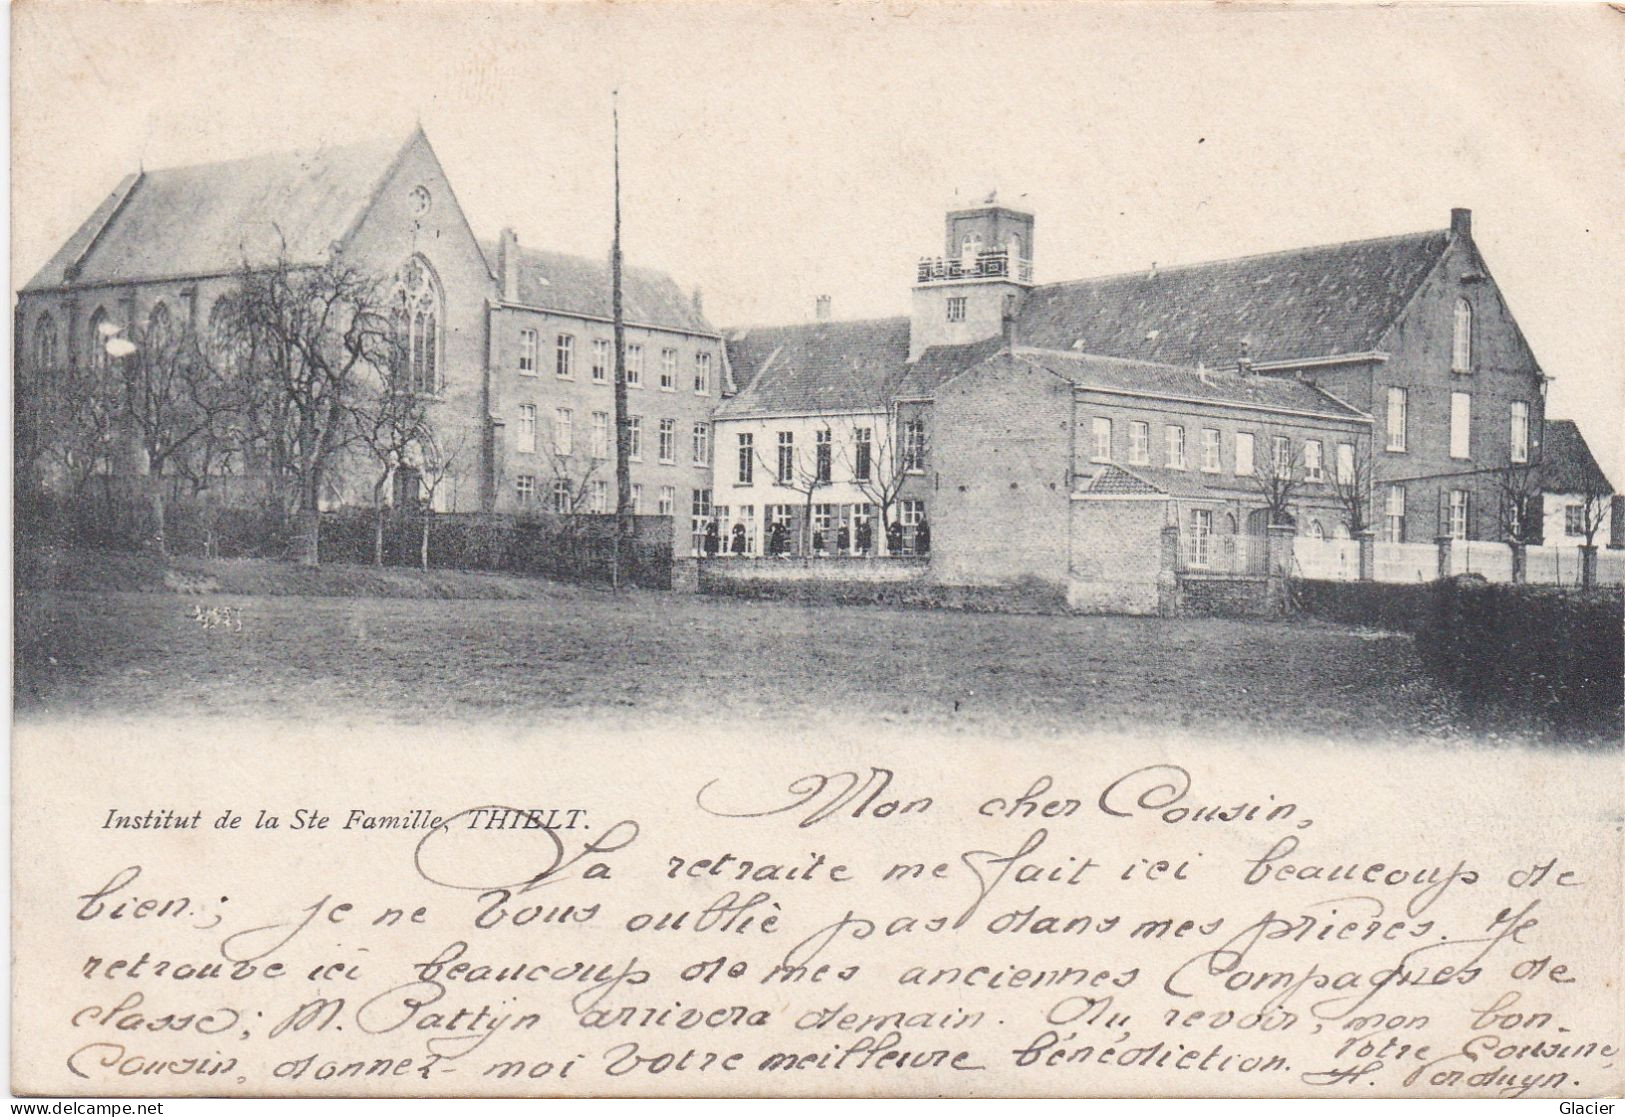 Institut de la Ste Famille, THIELT.
Mon cher Cousin,
La retraite me fait ici beaucoup de
bien; je ne vous oublie pas dans mes prières. Je
retrouve ici beaucoup de mes anciennes Compagnes de
classe; M. Pattÿn arrivera demain. Au revoir, mon bon
Cousin, donnez-moi votre meilleure bénédiction. Votre Cousine,
H. Verduyn.
delcampe.net
Glacier